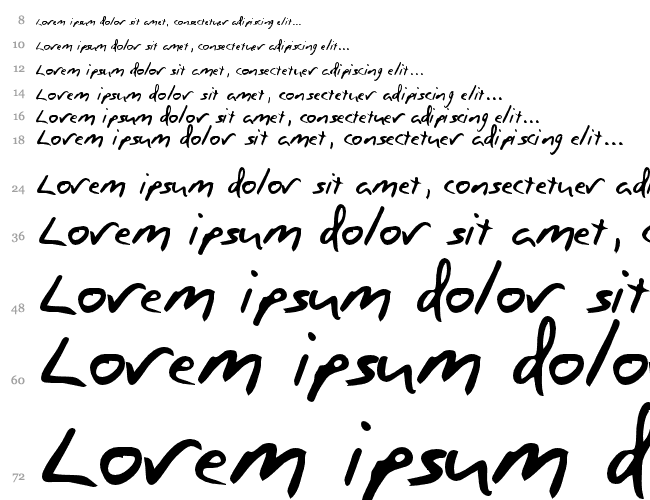 8 Lorem ipsum dolor sit amet, consectetuer adipiscing elit...
10 Lorem ipsum dolor sit amet, consectetuer adipiscing elit...
12 Lorem ipsum dolor sit amet, consectetuer adipiscing elit...
14 Lorem ipsum dolor sit amet, consectetuer adipiscing elit...
16 Lorem ipsum dolor sit amet, consectetuer adipiscing elit...
18 Lorem ipsum dolor sit amet, consectetuer adipiscing elit...
24 Lorem ipsum dolor sit amet, consectetuer adi
36 Lorem ipsum dolor sit amet, c
48 Lorem ipsum dolor sit
60 Lorem ipsum dolo
72 Lorem ipsum d